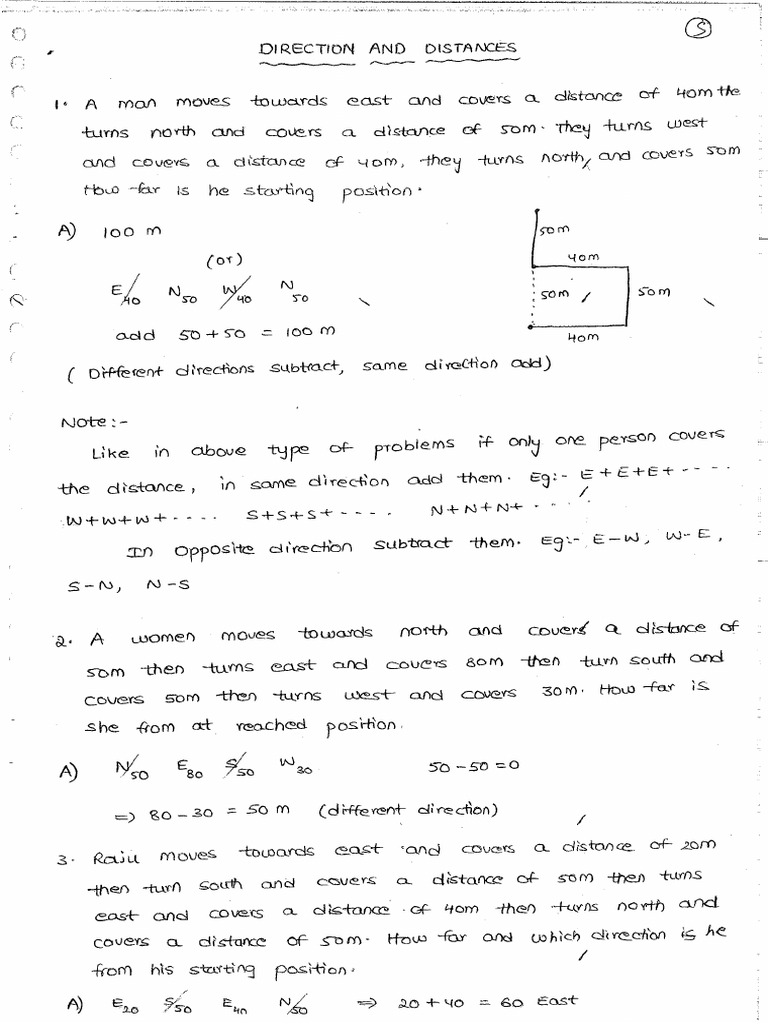 5
DIRECTION AND DISTANCES
1. A man moves towards east and covers a distance of 40m the
turns north and covers a distance of 50m. They turns west
and covers a distance of 40m, they turns north, and covers 50m
How far is he starting position.
A) 100 m
(or)
E/40 N50 W/40 N50
add 50+50 = 100 m
50m
40m
50m
50m
40m
( Different directions subtract, same direction add)
Note:-
Like in above type of problems if only one person covers
the distance, in same direction add them. Eg:- E+E+E+----.
W+W+W+---.. S+S+S+----. N+N+N+-...
In opposite direction subtract them. Eg:- E-W, W-E,
S-N, N-S
2. A women moves towards north and covers a distance of
50m then turns east and covers 80m then turn south and
covers 50m then turns west and covers 30m. How far is
she from at reached position.
A) N/50 E80 S/50 W30 50-50=0
=> 80-30 = 50 m (different direction)
3. Raju moves towards east and covers a distance of 20m
then turn south and covers a distance of 50m then turns
east and covers a distance of 40m then turns north and
covers a distance of 50m. How far and which direction is he
from his starting position.
A) E20 S/50 E40 N/50 => 20+40 = 60 East